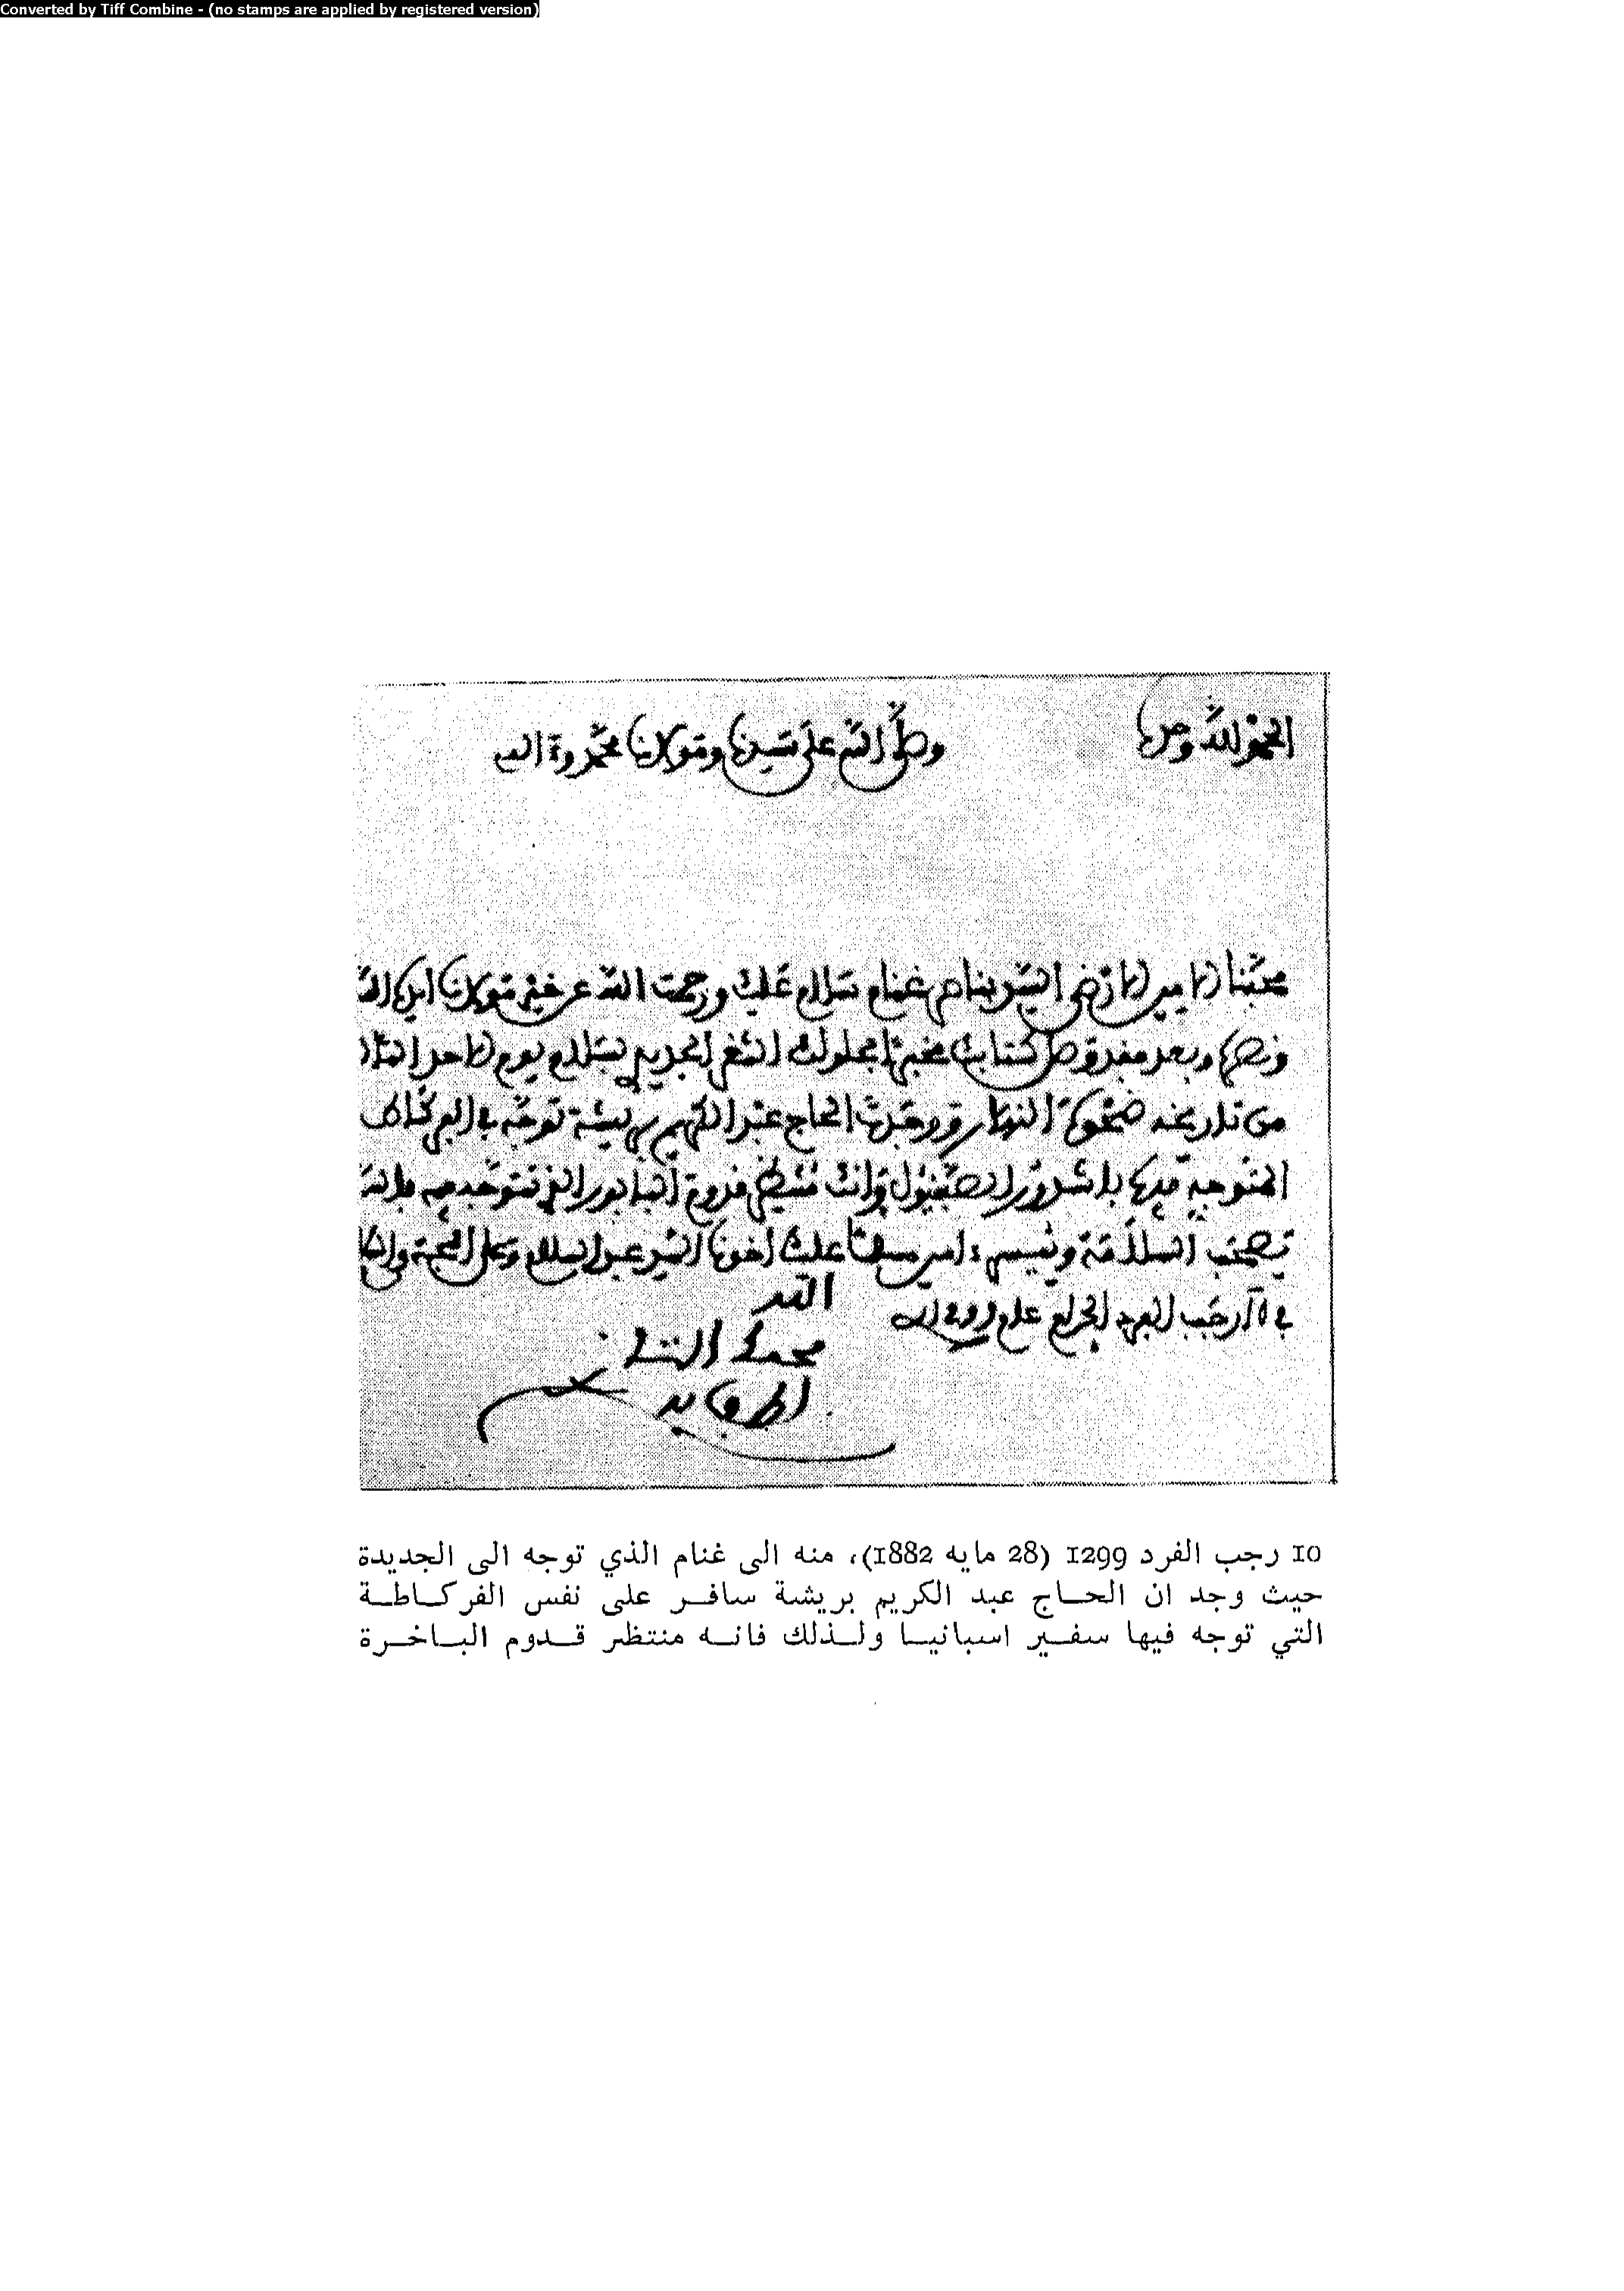 Converted by Tiff Combine - (no stamps are applied by registered version)
الحمد لله وحده
وصلى الله على سيدنا ومولانا محمد وءاله
محبنا الامين الارضى السيد بناصر غنام سلام عليك ورحمت الله عن خير مولانا ايده الله
ونصره وبعد فقد وصل كتابك مخبرا بحلولك الثغر الجديدي بسلام يوم الاحد
من تاريخه ضحوة النهار ووجدت الحاج عبد الكريم بريشة توجه في الفركاطة
المتوجه فيها باشدور الاصبنيول وانك منتظر قدوم البابور الذي تتوجه فيه فالله
يصحب السلامة وءامين يسلم عليك اخونا السيد عبد السلام وعلى المحبة والسلام
في رجب الفرد الحرام عام
الله
محمد
10 رجب الفرد 1299 (28 مايه 1882)، منه الى غنام الذي توجه الى الجديدة
حيث وجد ان الحاج عبد الكريم بريشة سافر على نفس الفركاطة
التي توجه فيها سفير اسبانيا ولذلك فانه منتظر قدوم الباخرة